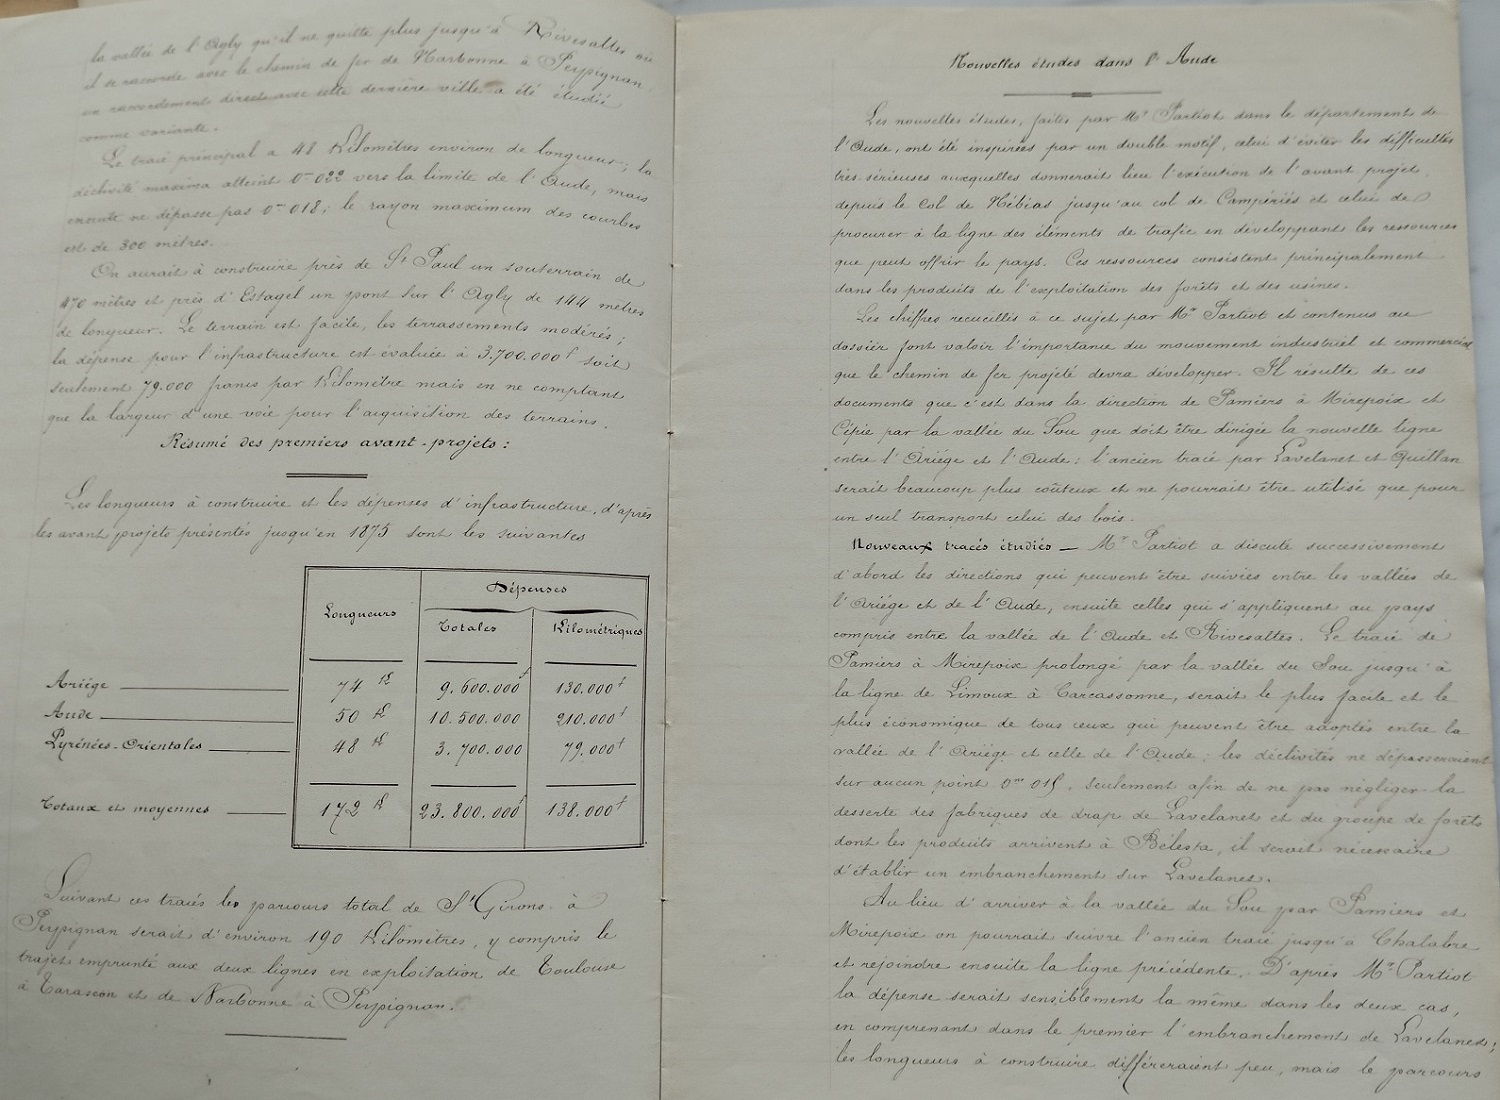 la vallée de l'Agly qu'il ne quitte plus jusqu'à Rivesaltes où
il se raccorde avec le chemin de fer de Narbonne à Perpignan.
un raccordement direct avec cette dernière ville a été étudié
comme variante.
Le tracé principal a 48 Kilomètres environ de longueur; la
déclivité maxima atteint 0m022 vers la limite de l'Aude, mais
ensuite ne dépasse pas 0m018; le rayon maximum des courbes
est de 300 mètres.
On aurait à construire près de St Paul un souterrain de
470 mètres et près d'Estagel un pont sur l'Agly de 144 mètres
de longueur. Le terrain est facile, les terrassements modérés;
la dépense pour l'infrastructure est évaluée à 3.700.000f soit
seulement 79.000 francs par Kilomètre mais en ne comptant
que la largeur d'une voie pour l'acquisition des terrains.
Résumé des premiers avant-projets:
Les longueurs à construire et les dépenses d'infrastructure, d'après
les avant projets présentés jusqu'en 1875 sont les suivantes
Dépenses
Longueurs Totales Kilométriques
Ariège 74 K 9.600.000f 130.000f
Aude 50 K 10.500.000 210.000f
Pyrénées-Orientales 48 K 3.700.000 79.000f
Totaux et moyennes 172 K 23.800.000f 138.000f
Suivant ces tracés les parcours total de St Girons à
Perpignan serait d'environ 190 Kilomètres, y compris le
trajet emprunté aux deux lignes en exploitation de Toulouse
à Tarascon et de Narbonne à Perpignan.
Nouvelles études dans l'Aude
Les nouvelles études, faites par Mr Partiot dans le département de
l'Aude, ont été inspirées par un double motif, celui d'éviter les difficultés
très sérieuses auxquelles donnerait lieu l'exécution de l'avant projet,
depuis le Col de Nébias jusqu'au col de Campériès et celui de
procurer à la ligne des éléments de trafic en développant les ressources
que peut offrir le pays. Ces ressources consistent principalement
dans les produits de l'exploitation des forêts et des usines.
Les chiffres recueillis à ce sujet par Mr Partiot et contenus au
dossier font valoir l'importance du mouvement industriel et commercial
que le chemin de fer projeté devra développer. Il résulte de ces
documents que c'est dans la direction de Pamiers à Mirepoix et
Cépie par la vallée du Sou que doit être dirigée la nouvelle ligne
entre l'Ariège et l'Aude: l'ancien tracé par Lavelanet et Quillan
serait beaucoup plus coûteux et ne pourrait être utilisé que pour
un seul transport celui des bois.
Nouveaux tracés étudiés — Mr Partiot a discuté successivement
d'abord les directions qui peuvent être suivies entre les vallées de
l'Ariège et de l'Aude, ensuite celles qui s'appliquent au pays
compris entre la vallée de l'Aude et Rivesaltes. Le tracé de
Pamiers à Mirepoix prolongé par la vallée du Sou jusqu'à
la ligne de Limoux à Carcassonne, serait le plus facile et le
plus économique de tous ceux qui peuvent être adoptés entre la
vallée de l'Ariège et celle de l'Aude; les déclivités ne dépasseraient
sur aucun point 0m015. seulement afin de ne pas négliger la
desserte des fabriques de drap de Lavelanet et du groupe de forêts
dont les produits arrivent à Bélesta, il serait nécessaire
d'établir un embranchement sur Lavelanet.
Au lieu d'arriver à la vallée du Sou par Pamiers et
Mirepoix on pourrait suivre l'ancien tracé jusqu'à Chalabre
et rejoindre ensuite la ligne précédente. D'après Mr Partiot
la dépense serait sensiblement la même dans les deux cas,
en comprenant dans le premier l'embranchement de Lavelanet;
les longueurs à construire différeraient peu, mais le parcours